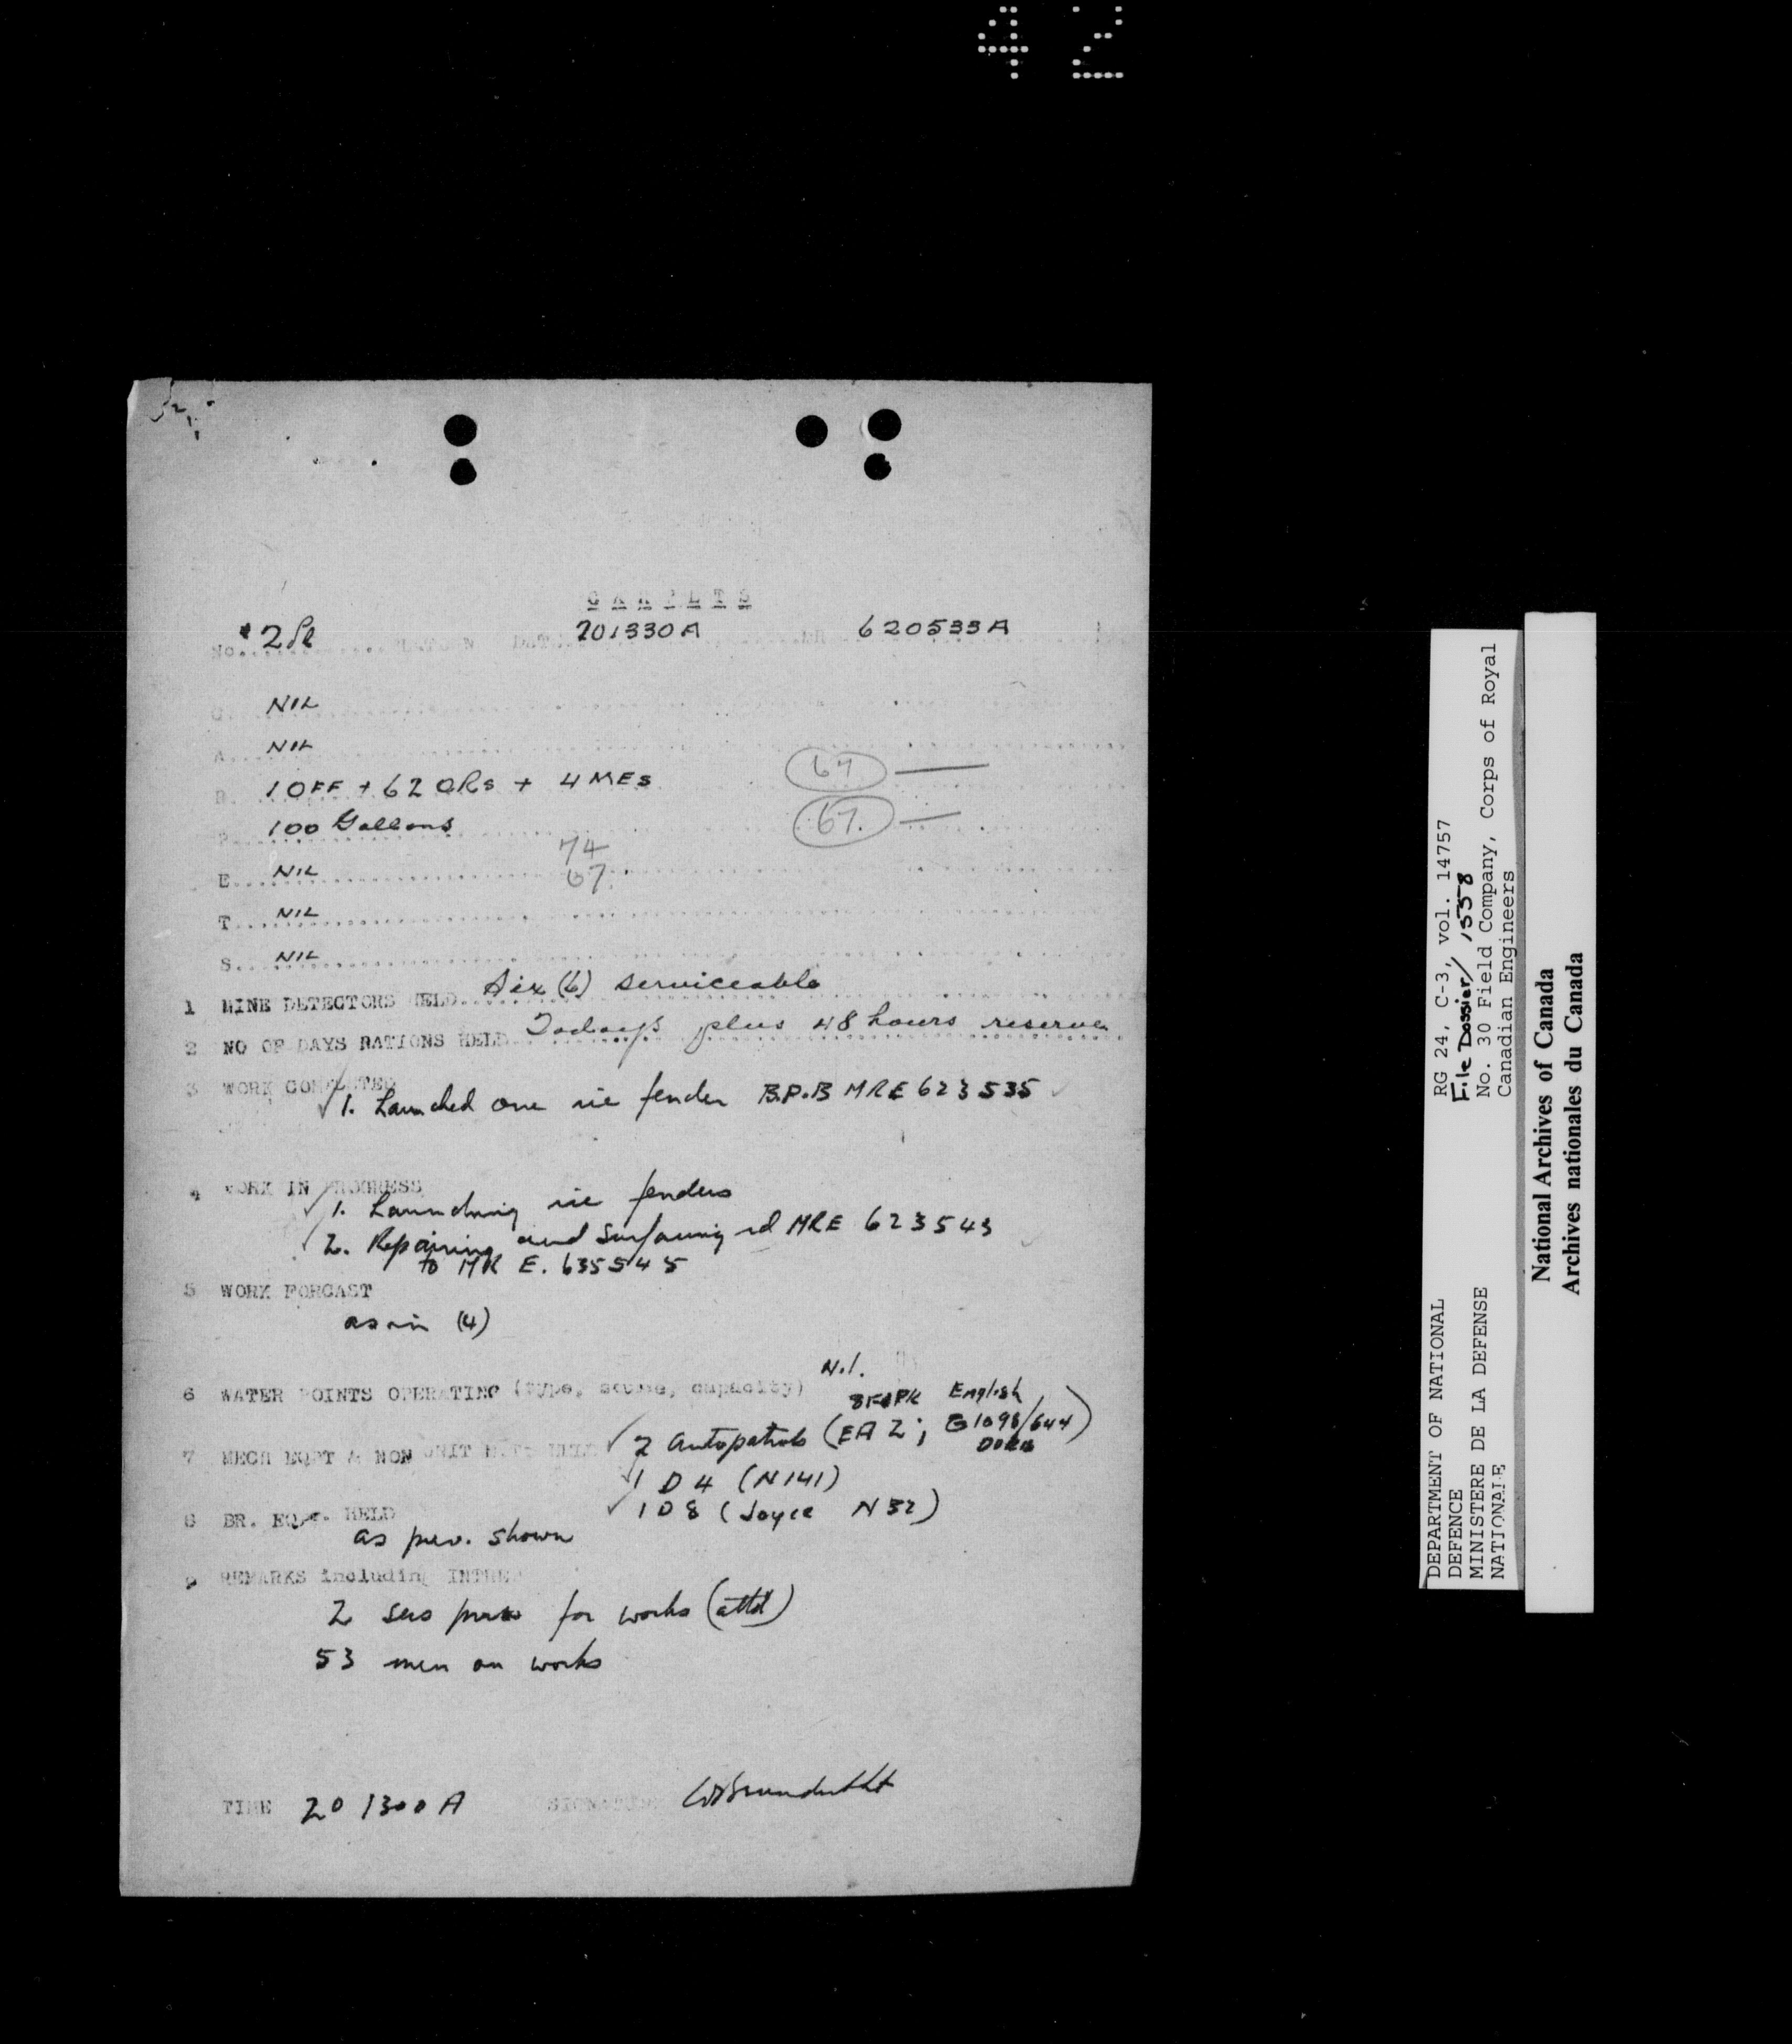 42
No. 2 Pl PLATOON DATE 201330A MR 620533A
G. NIL
A. NIL
R. 1 OFF + 62 ORs + 4 MEs 67
P. 100 Gallons 67.
74
E. NIL 67.
T. NIL
S. NIL
1 MINE DETECTORS HELD Six (6) serviceable
2 NO OF DAYS RATIONS HELD Todays plus 48 hours reserve
3 WORK COMPLETED
1. Launched one ice fender B.P.B MRE 623535
4 WORK IN PROGRESS
1. Launching ice fenders
2. Repairing and surfacing rd MRE 623543
to MR E. 635545
5 WORK FORCAST
as in (4)
6 WATER POINTS OPERATING (type, source, capacity) Nil.
English
7 MECH EQPT & NON UNIT HELD 2 Autopatrols (EA 2; G1098/644)
1 D4 (N141)
1 D8 (Joyce N32)
8 BR. EQPT. HELD
as prev. shown
9 REMARKS including INTREP
2 secs for works (attd)
53 men on works
TIME 201300A SIGNATURE
DEPARTMENT OF NATIONAL RG 24, C-3, vol. 14757
DEFENCE File Dossier/ 1558
MINISTERE DE LA DEFENSE No. 30 Field Company, Corps of Royal
NATIONALE Canadian Engineers
National Archives of Canada
Archives nationales du Canada